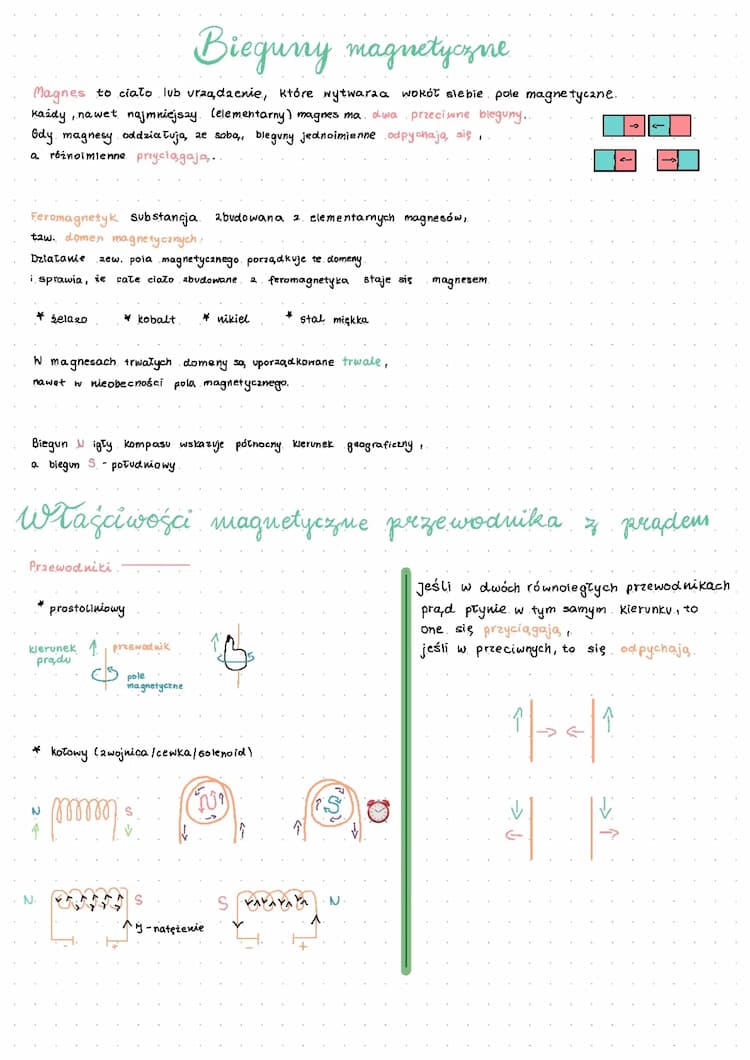 Bieguny magnetyczne
Magnes to ciało lub urządzenie, które wytwarza wokół siebie pole magnetyczne.
Każdy, nawet najmniejszy (elementarny) magnes ma dwa przeciwne bieguny.
Gdy magnesy oddziałują ze sobą, bieguny jednoimienne odpychają się,
a różnoimienne przyciągają.
Feromagnetyk substancja zbudowana z elementarnych magnesów,
tzw. domen magnetycznych.
Działanie zew. pola magnetycznego porządkuje te domeny
i sprawia, że całe ciało zbudowane z feromagnetyka staje się magnesem
* żelazo * kobalt * nikiel * stal miękka
W magnesach trwałych domeny są uporządkowane trwale,
nawet w nieobecności pola magnetycznego.
Biegun N igły kompasu wskazuje północny kierunek geograficzny,
a biegun S - południowy
Właściwości magnetyczne przewodnika z prądem
Przewodniki
* prostoliniowy
kierunek prądu
przewodnik
pole magnetyczne
* kołowy (zwojnica/cewka/solenoid)
N S
N
S
N S
- +
J - natężenie
S N
- +
jeśli w dwóch równoległych przewodnikach
prąd płynie w tym samym kierunku, to
one się przyciągają,
jeśli w przeciwnych, to się odpychają